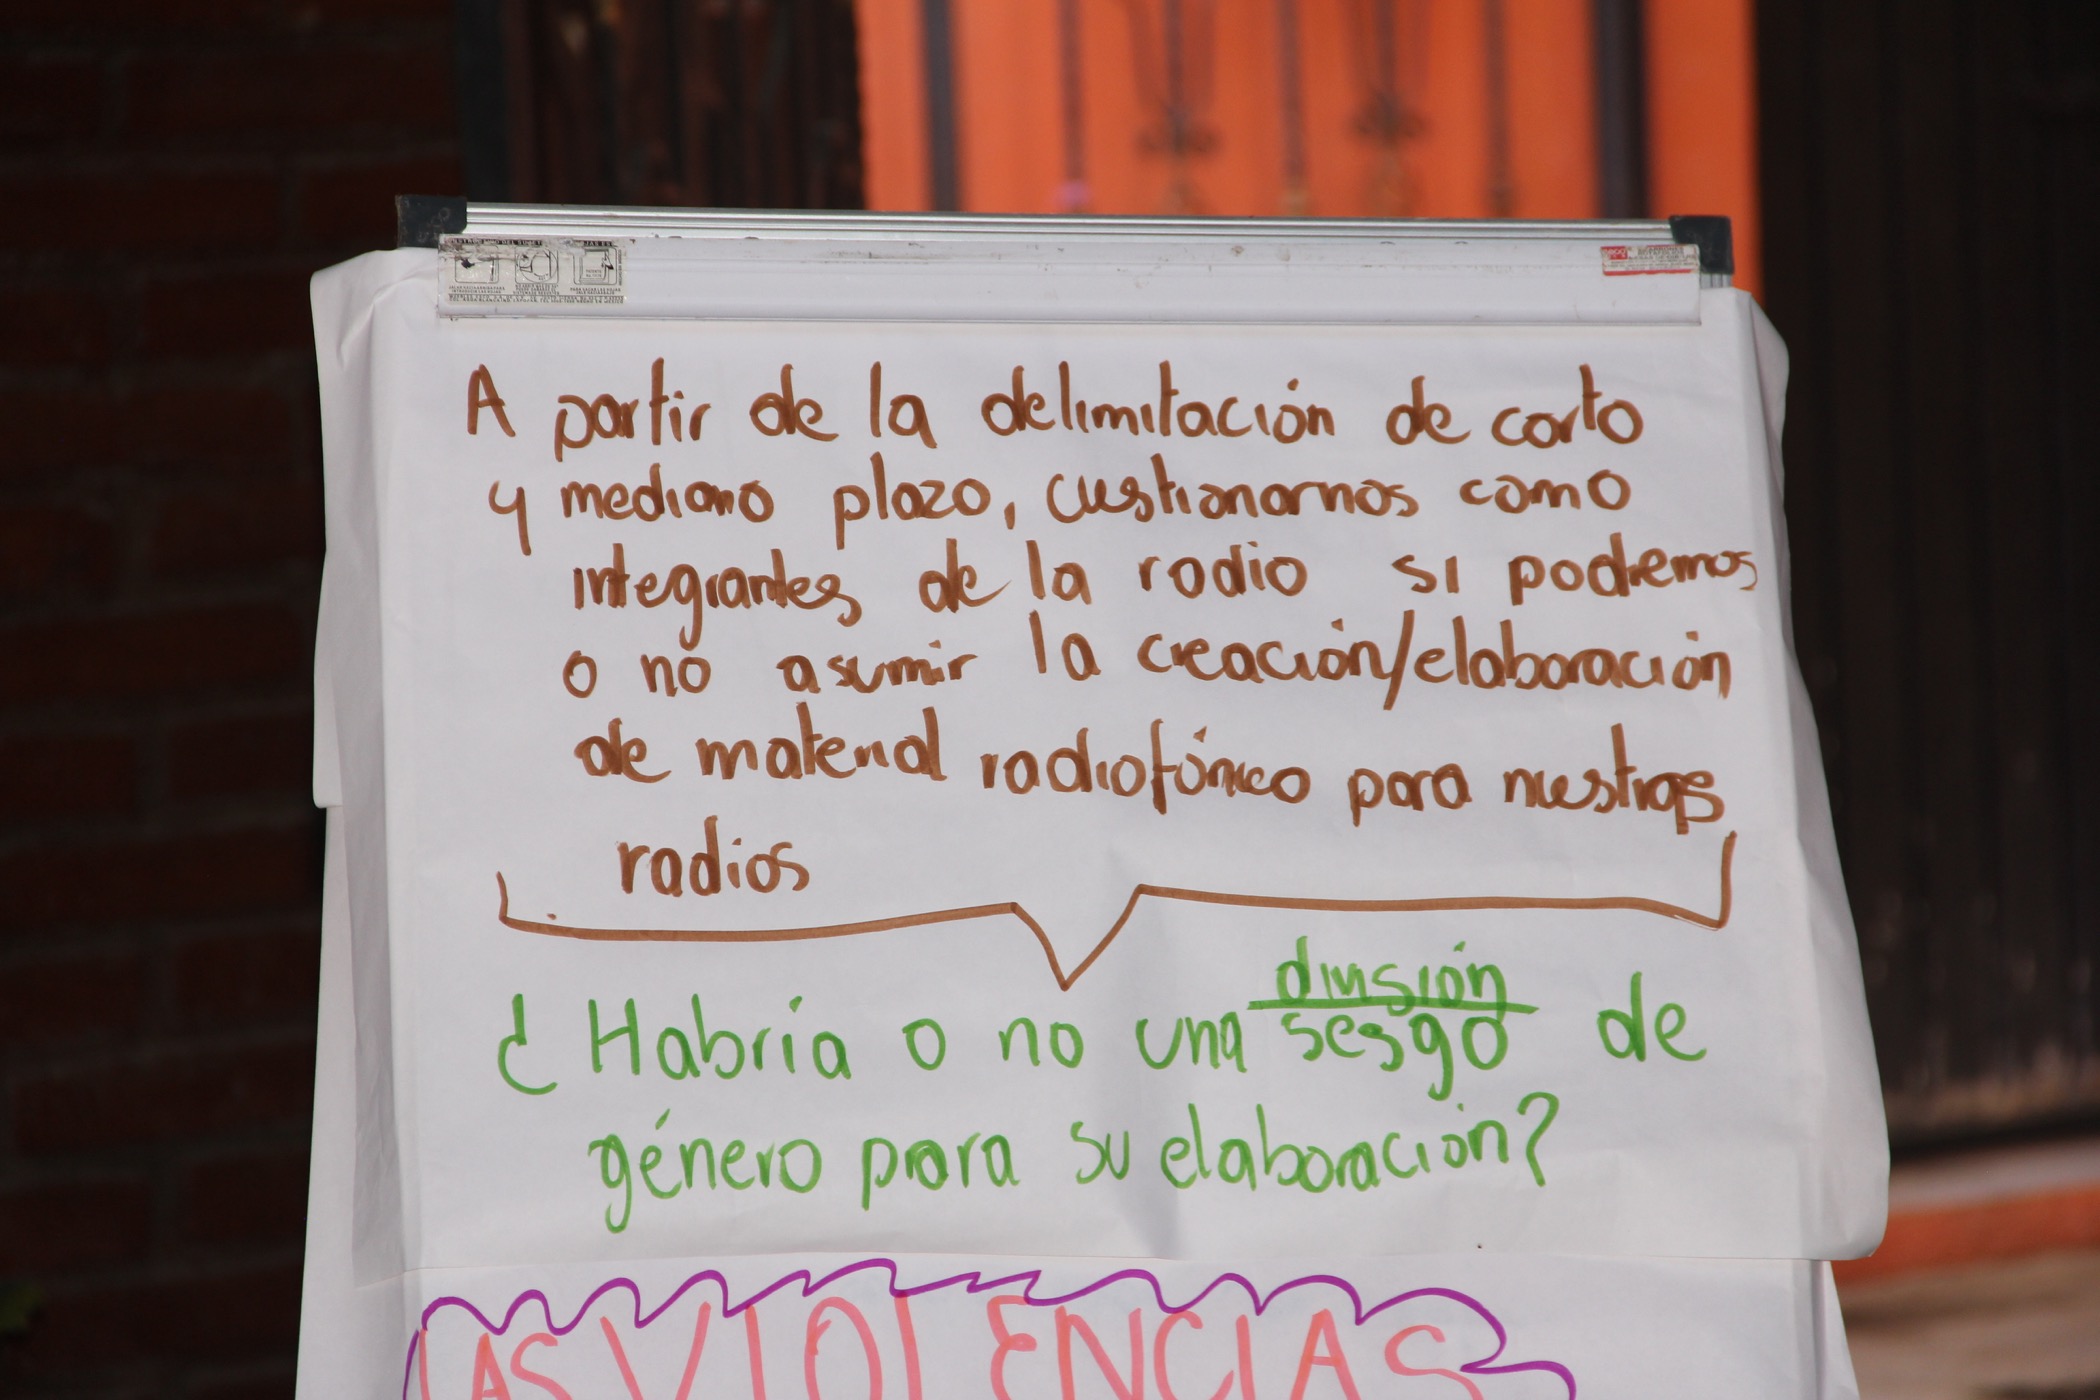 A partir de la delimitación de corto
y mediano plazo, custionarnos como
integrantes de la radio si podremos
o no asumir la creación/elaboración
de material radiofónico para nuestras
radios
división
¿Habría o no una sesgo de
género para su elaboración?
LAS VIOLENCIAS